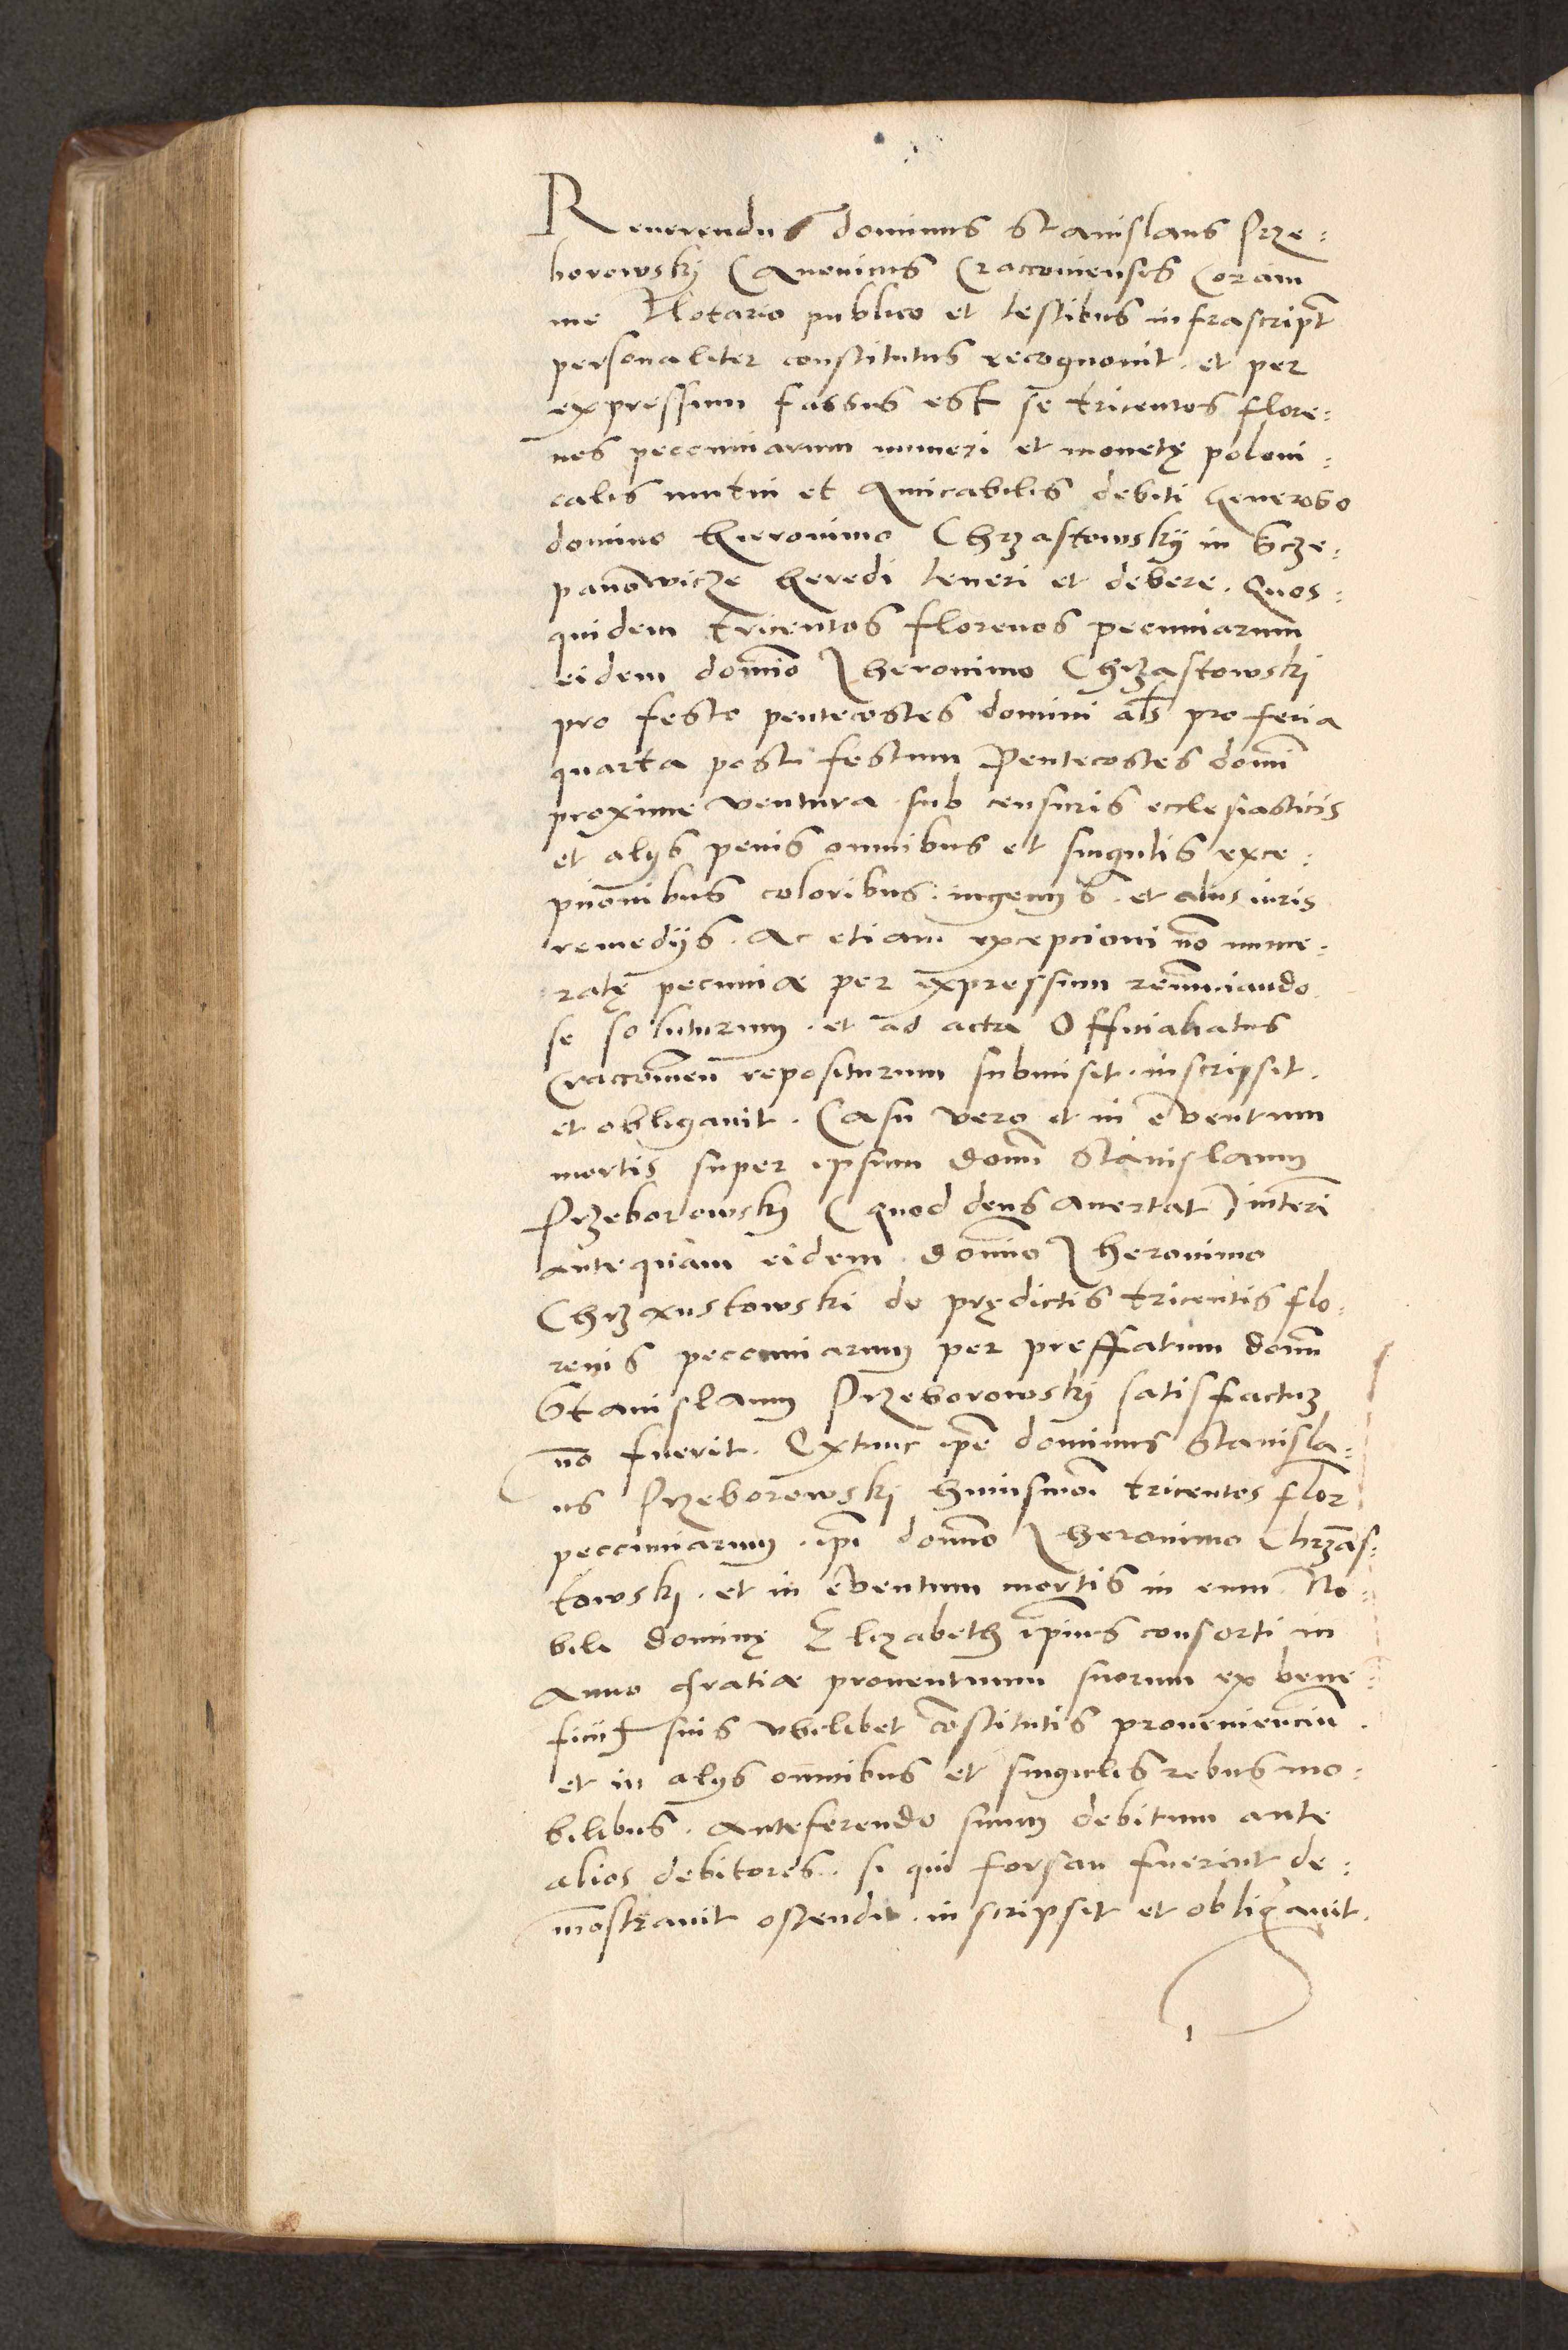 Reuerendus dominus Stanislaus Prze:
borowskj Canonicus Craccouiensis Coram
me Notario publico et testibus infrascript
personaliter constitutus recognouit. et per
expressum fassus est se tricentos flore:
nos peccuniarum numeri et monetę poloni:
calis mutui et Amicabilis debiti generoso
domino hieronimo Chrzastowskÿ in Scze:
panowicze heredi teneri et debere. Quos:
quidem tricentos florenos pecuniarum
eidem domio Iheronimo Chrzastowskj
pro festo pentecostes domini als pro feria
quarta post festum Pentecostes domi
proxime ventura. sub censuris ecclesiasticis
et alÿs penis omnibus et singulis exce:
ptionibus coloribus. ingenÿs. et alius iuris
remedÿs. Ac etiam excepcioni no nume:
ratę pecuniæ per expressum renunciando.
se soluturum. et ad acta Officialatus
Craccouien repositurum submisit. inscripsit.
et obligauit. Casu vero et in euentum
mortis super ipsum domi Stanislaum
Przeborowskj (quod deus auertat) interi
antequam eidem domino Iheronimo
Chrzanstowski de prędictis tricentis flo:
renis peccuniarum per preffatum domi
Stanislaum Przeborowskj satisfactuz
no fuerit. Extunc ipe dominus Stanisla:
us Przeborowskj huiusmoi tricentos flor
peccuniarum. ipi domino Iheronimo Chrzas:
towskj. et in euentum mortis in eum No:
bili dominę Elizabeth ipius consorti in
Anno gratiæ prouentuum suorum ex bene:
ficijs suis vbilibet costitutis prouenienciu.
et in alÿs omnibus et singulis rebus mo:
bilibus. Anteferendo suum debitum ante
alios debitores. si qui forsan fuerint de:
mostrauit ostendit. inscripsit et obligauit.